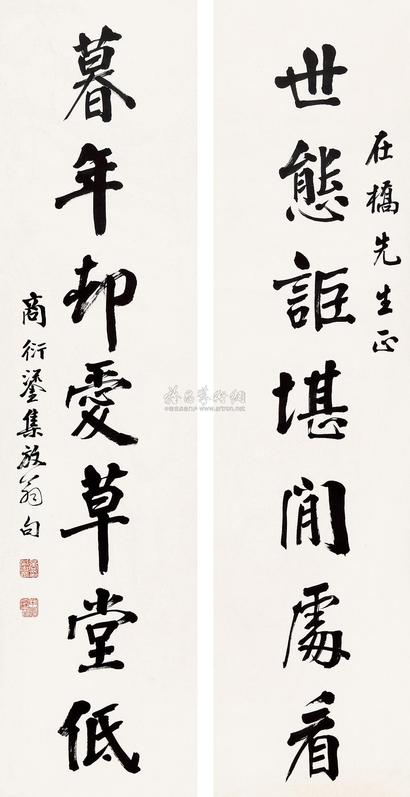 在橋先生正
世態詎堪閒處看
暮年却愛草堂低
商衍鎏集放翁句
www.artron.net